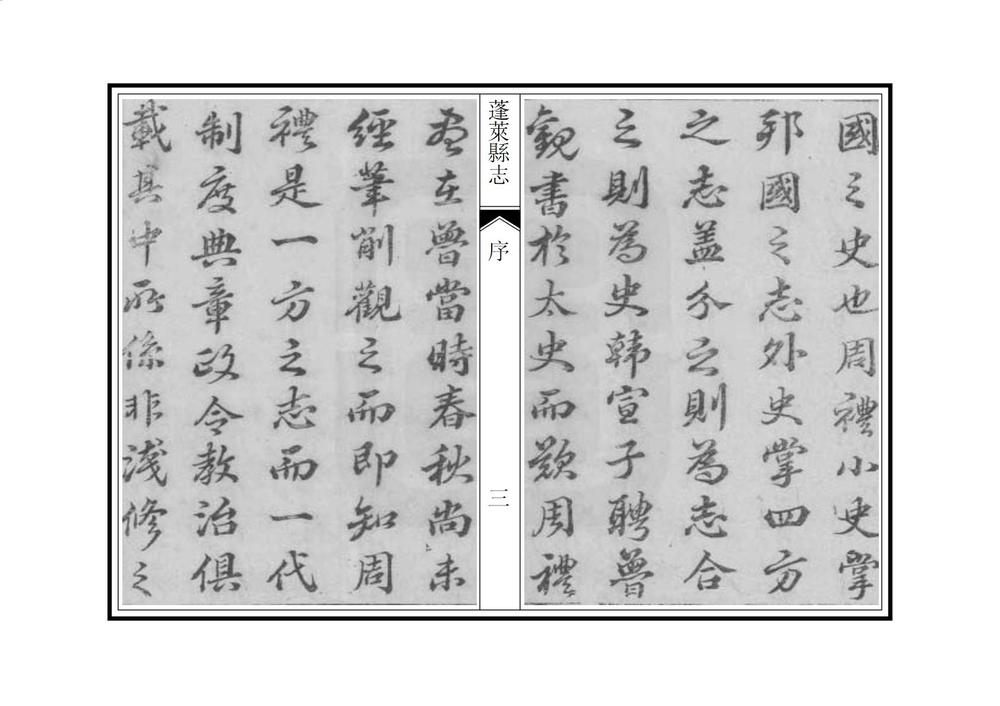 國之史也周禮小史掌
邦國之志外史掌四方
之志盖分之則為志合
之則為史韓宣子聘魯
觀書於太史而歎周禮
蓬萊縣志
序
三
盡在魯當時春秋尚未
經筆削觀之而即知周
禮是一方之志而一代
制度典章政令教治俱
載其中所係非淺修之